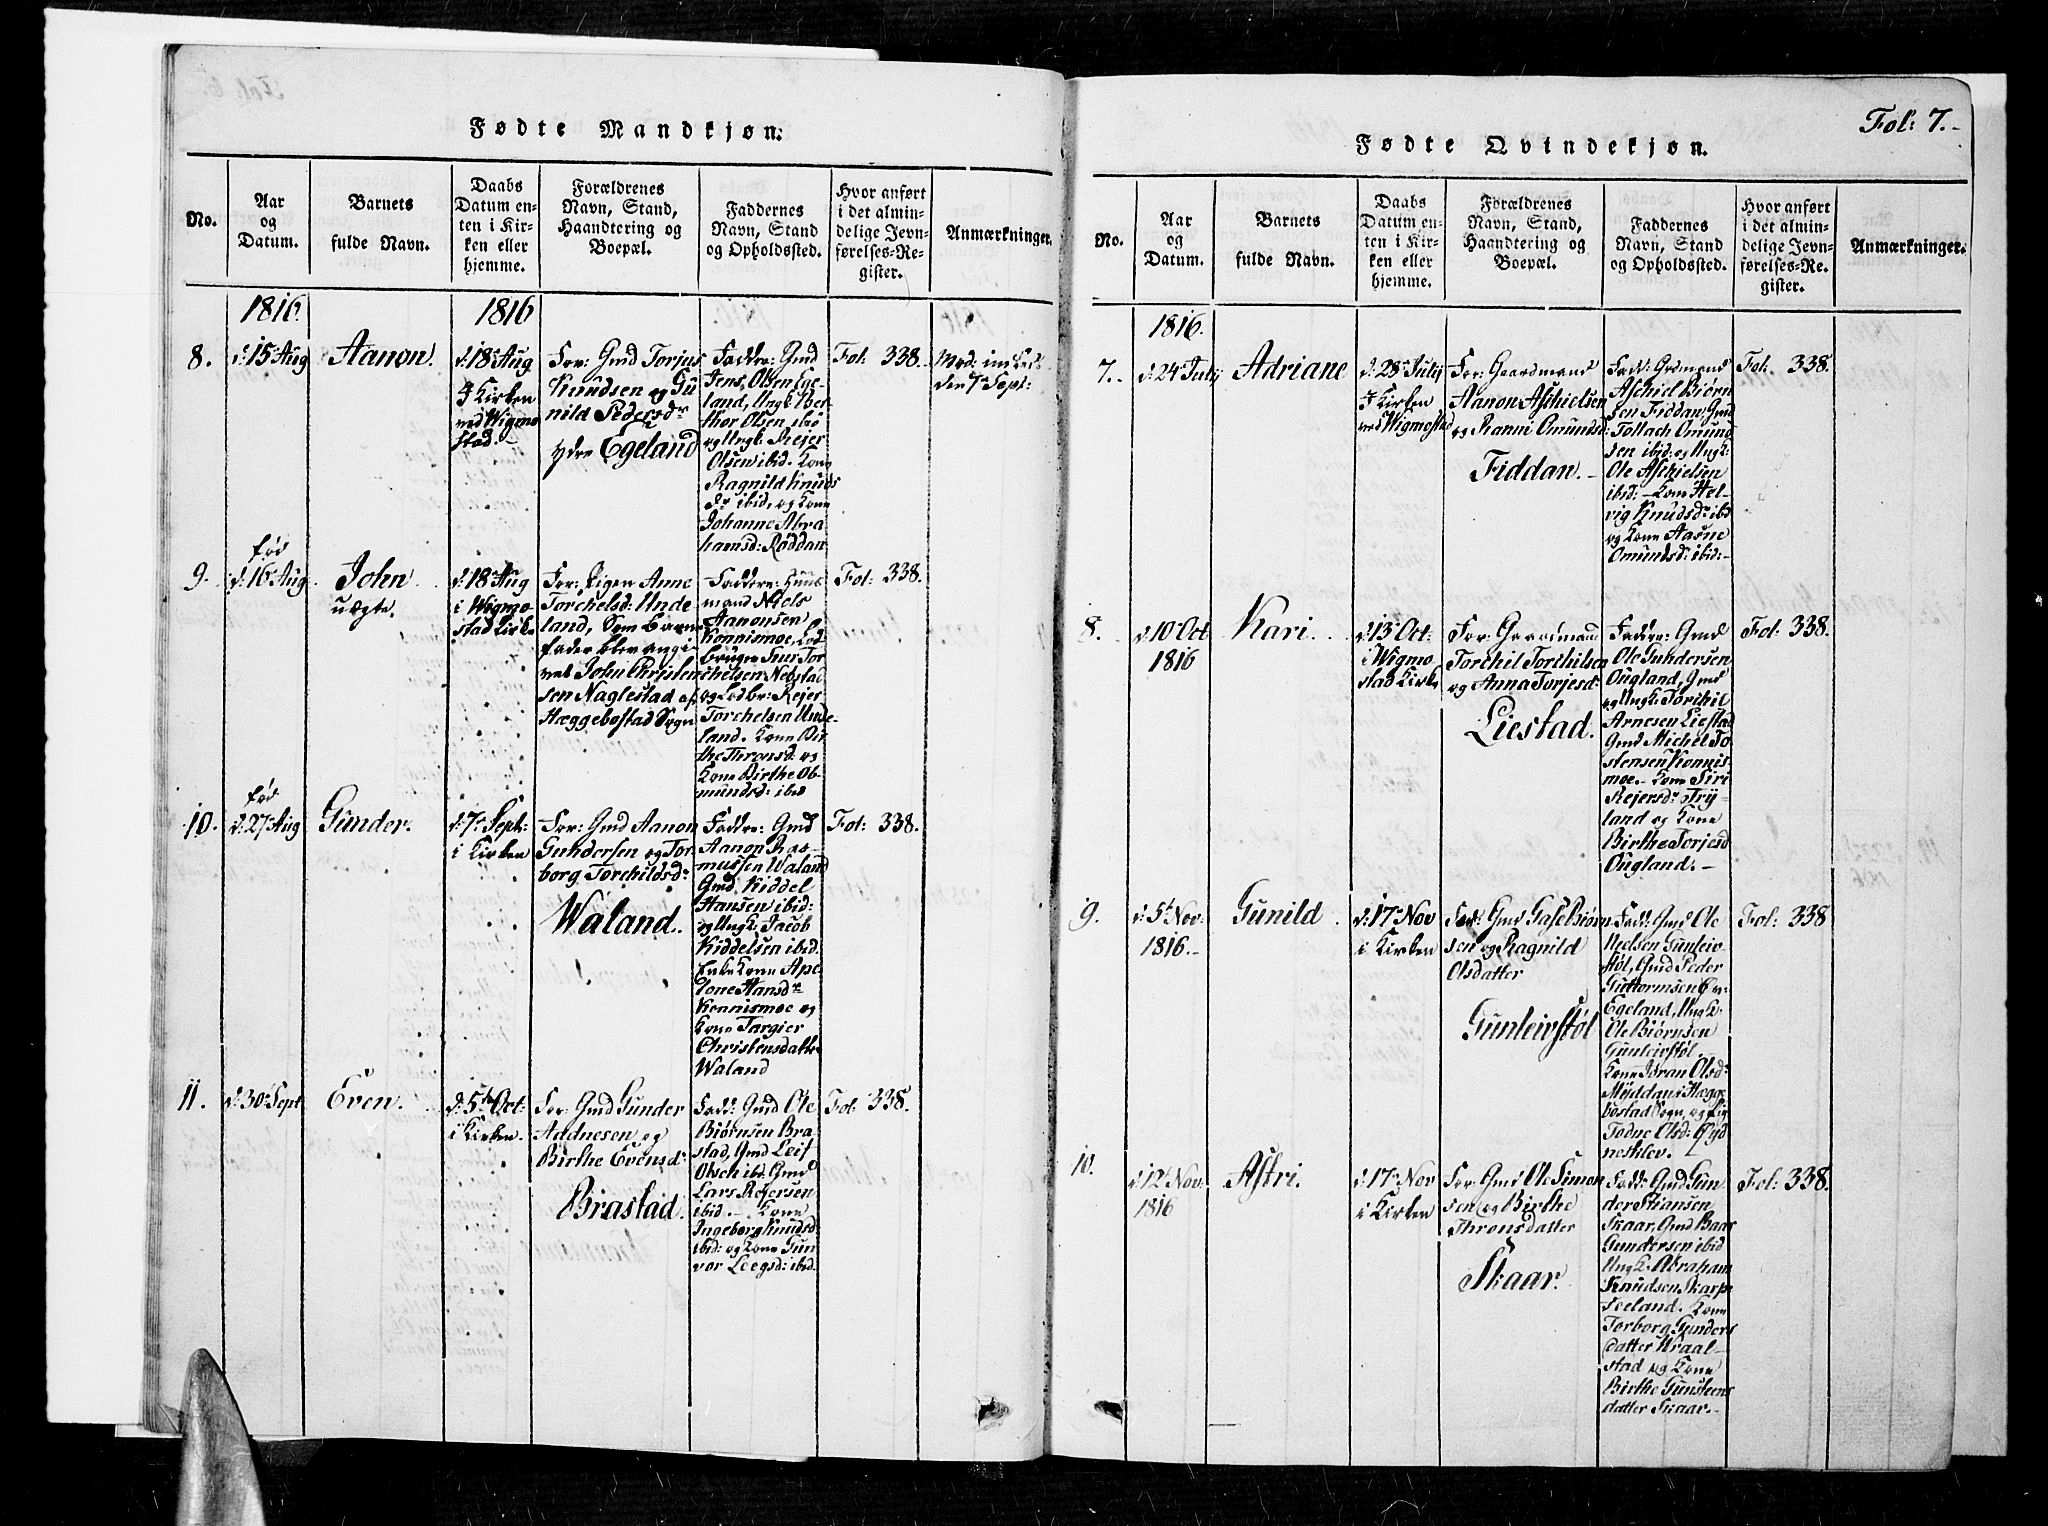 Fødte Mandkjøn.
No.
Aar
og
Datum.
Barnets
fulde Navn.
Daabs
Datum en-
ten i Kir-
ken eller
hjemme.
Forældrenes
Navn, Stand,
Haandtering og
Boepæl.
Faddernes
Navn, Stand
og Opholdssted.
Hvor anført
i det almin-
delige Jevn-
førelses-Re-
gister.
Anmærkninger.
1816.
1816
8.
d: 15 Aug
Aanon.
d. 18 Aug
I Kirken
ved Wigmo
stad.
For: Gmd Torjus
Knudsen og Gu
nild Pedersdr
ydre Egeland
Faddre: Gmd
Jens Olsen Ege-
land, Ungk
Thor Olsen ibid
og Ungk: Rejer
Olsen ibid. Kone
Ragnild Knuds
dr ibid, og Kone
Johanne Abra
hamsd: Røddan
Fol: 338.
Mod:
den 7 Sept:
9.
fød
d. 16 Aug
John
uægte.
d. 18 Aug
i Wigmo-
stad Kirke
For: Pigen Anne
Torchelsd: Unde
land, Som Barne
fader blev angi-
vet John Christen
sen Naglestad af
Hæggebostad Sogn
Faddere: Huus
mand Niels
Aanonsen
Konnismoe, Led
bruger Tor
chelsen Nebstad
og Ledbr: Rejer
Torchelsen Unde-
land. Kone Bir
the Thronsd: og
Kone Birthe Ob-
mundsd: ibid
Fol: 338.
10.
fød
d: 27 Aug
Gunder.
d: 7 Sept:
i Kirken
For: Gmd Aanon
Gundersen og Tor-
borg Torchildsdr
Waland.
Faddre: Gmd
Aanon Ras-
mussen Waland
Gmd. Kiddel
Hansen ibid:
og Ungk. Jacob
Kiddelsen ibid.
Enke Kone Ape-
lone Hansdr
Konnismoe og
Kone Targier
Christensdatter
Waland
Fol: 338.
11.
d: 30 Sept
Even.
d: 5te Oct:
i Kirken.
For: Gmd Gunder
Addnesen og
Birthe Evensd:
Brastad.
Fadd: Gmd Ole
Biørnsen Bra-
stad, Gmd Leif
Olsen ibd. Gmd
Lars Reiersen
ibid. – Kone
Ingeborg Knudsd:
ibid: og Kone Gun
vor Leegsd: ibid.
Fol: 338.
Fol: 7.-
Fødte Qvindekjøn.
No.
Aar
og
Datum.
Barnets
fulde Navn.
Daabs
Datum en-
ten i Kir-
ken eller
hjemme.
Forældrenes
Navn, Stand,
Haandtering og
Boepæl.
Faddernes
Navn, Stand
og Opholdssted.
Hvor anført
i det almin-
delige Jevn-
førelses-Re-
gister.
Anmærkninger.
1816.
7.
d: 24 July
Adriane
d: 28 July
I Kirken
ved Wigmostad
For: Gaardmand
Aanon Aschielsen
og Ranni Omundsd:
Fiddan.
Fadd: Grdmand
Aschiel Biørn
sen Fiddan, Gmd
Tollach Omund
sen ibid: og Ungk:
Ole Aschielsen
ibid: – Kone Hel-
vig Knudsdr ibd
og Kone Aasne
Omundsd: ibid:
Fol: 338.
8.
d: 10 Oct
1816
Kari.
d: 13 Oct:
i Wigmo
stad Kirke
For: Gaardmand
Torchil Torchilsen
og Anna Torjesd:
Liestad.
Faddre: Gmd
Ole Gundersen
Ougland, Gmd
og Ungk: Torchil
Arnesen Liestad
Gmd Michel To
stensen Konnis-
moe. Kone Siri
Rejersd: Try-
land og Kone
Birthe Torjesd
Ougland. –
Fol: 338.
9.
d: 5t Nov:
1816.-
Gunild
d: 17 Nov
i Kirken
For: Gmd Biørn
sen og Ragnild
Olsdatter
Gunleivstøl
Fadd: Gmd Ole
Nielsen Gunleiv-
støl, Gmd Peder
Guttormsen
Egeland, Ungk.
Ole Biørnsen
Gunleivstøl.
Kone Joran Olsd:
Myddan i Hægge
bostad Sogn, og Pig
Todne Olsd:
Fol: 338
10.
d: 12t Nov.
1816
Astri.
d: 17 Nov
i Kirken
For: Gmd Ole Simon
sen og Birthe
Thronsdatter
Skaar.
Fadd: Gmd Gun
der Stiansen
Skaar, Gmd Baar
Gundersen ibid
Ungk. Abraham
Knudsen Skarp-
Seeland. Kone
Torborg Gunders
datter Wraal-
stad og Kone
Birthe Gunsteens
datter Skaar.
Fol: 338.